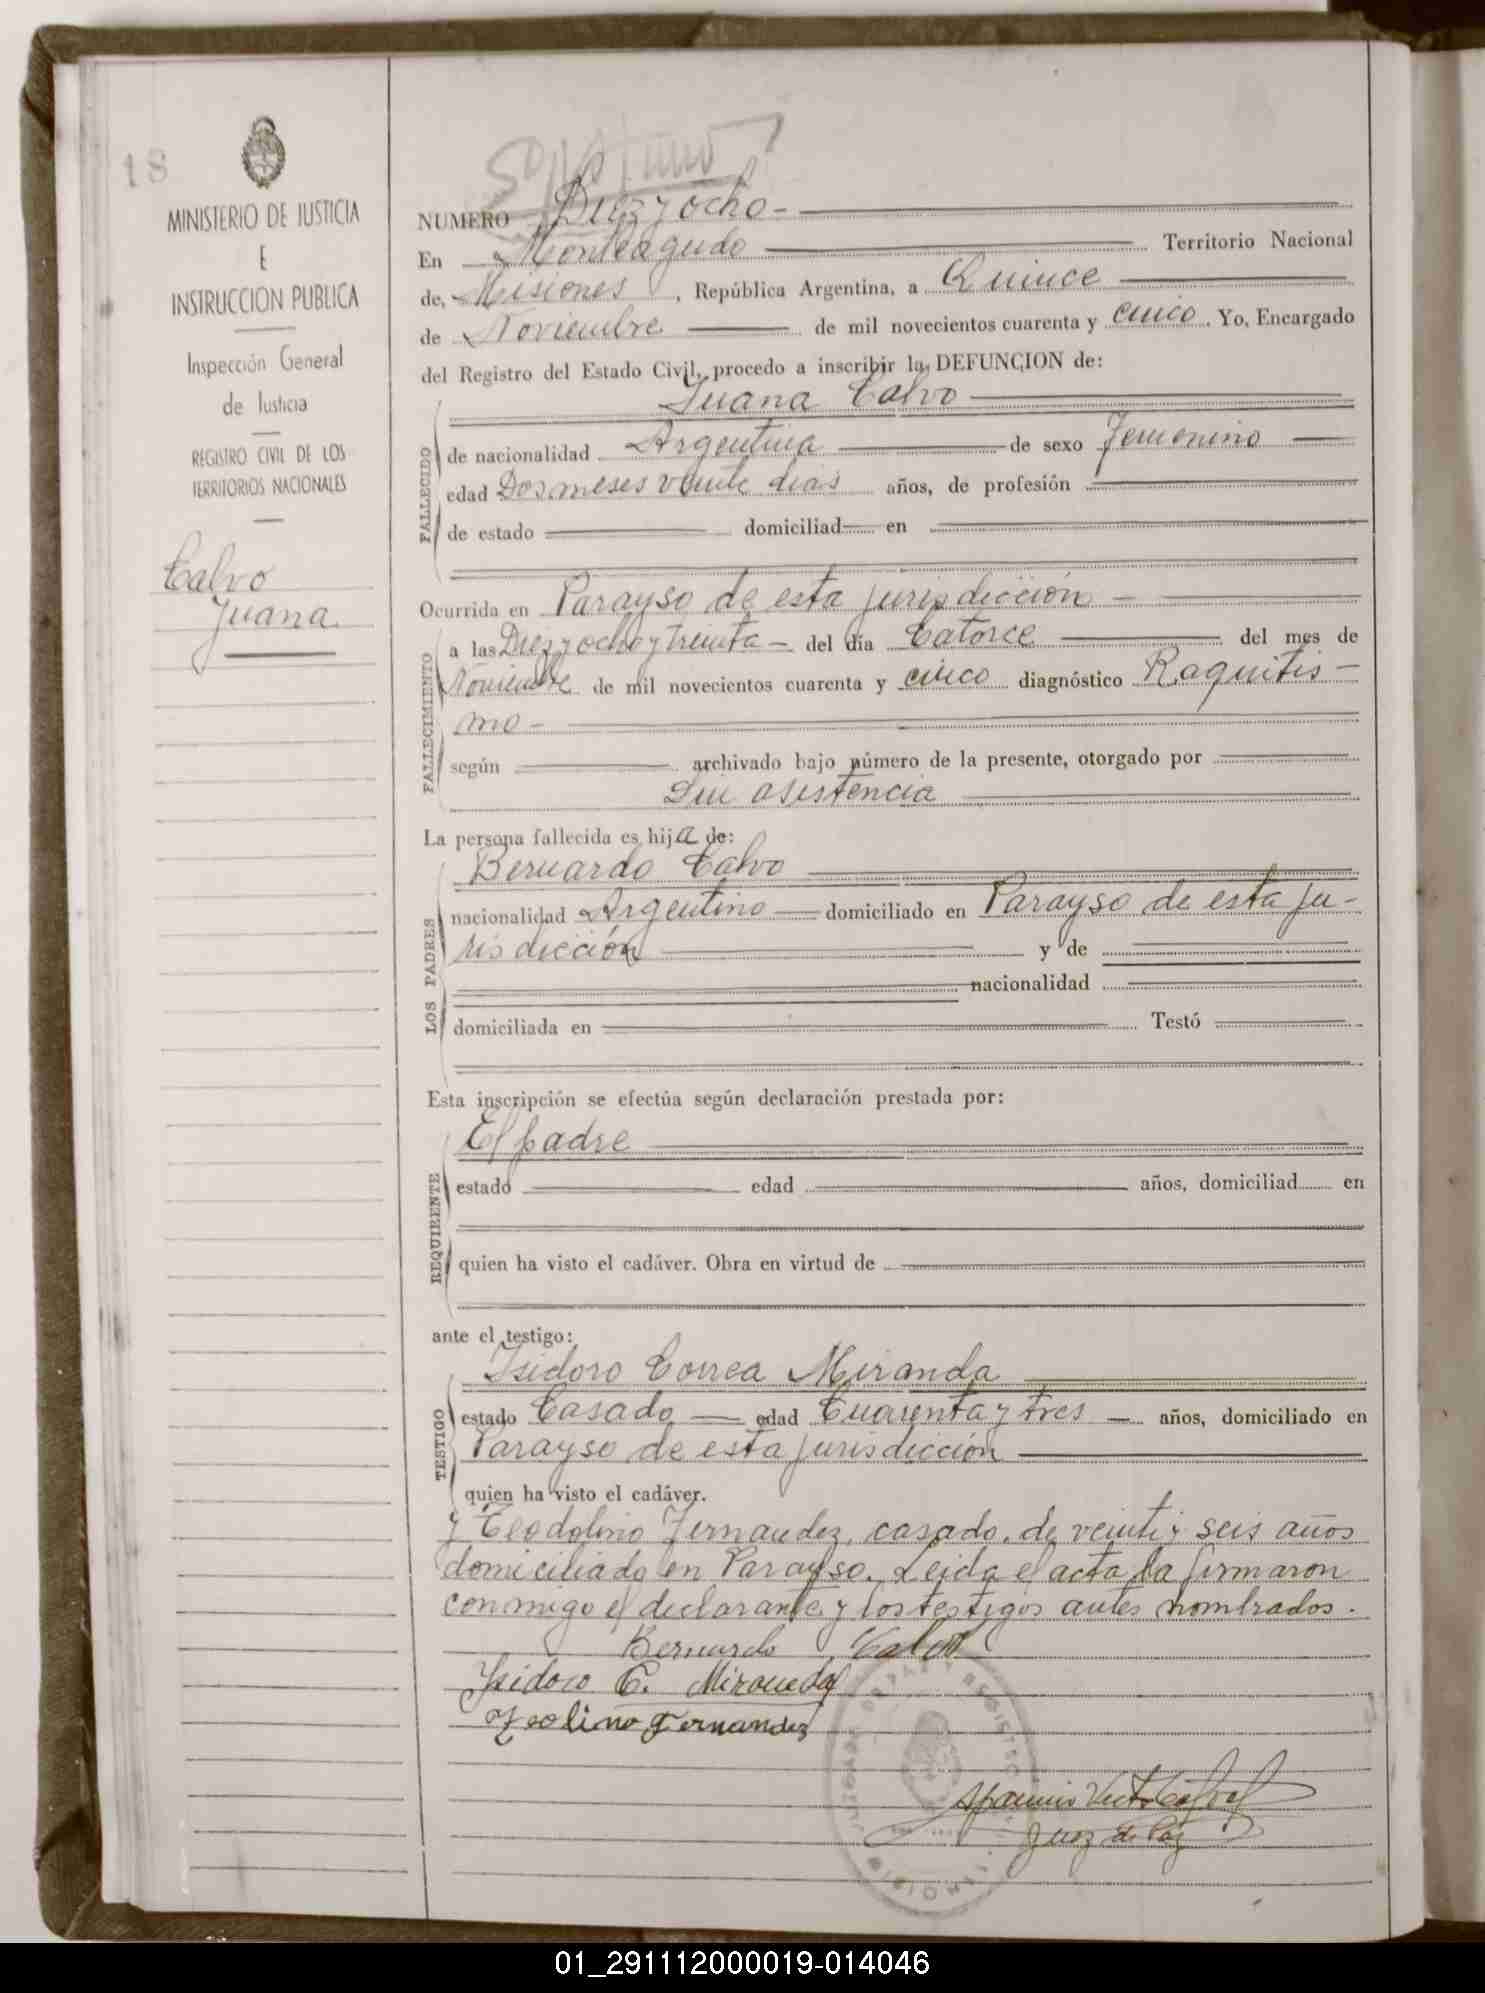 18
MINISTERIO DE JUSTICIA
E
INSTRUCCION PUBLICA
Inspección General
de Justicia
REGISTRO CIVIL DE LOS
TERRITORIOS NACIONALES
Calvo
Juana
NUMERO Diez y ocho -
En Monteagudo Territorio Nacional
de, Misiones, República Argentina, a Quince
de Noviembre de mil novecientos cuarenta y cinco. Yo, Encargado
del Registro del Estado Civil, procedo a inscribir la DEFUNCION de:
Juana Calvo
FALLECIDO
de nacionalidad Argentina de sexo Femenino
edad Dos meses veinte dias años, de profesión
de estado domiciliad en
Ocurrida en Parayso de esta jurisdicción -
FALLECIMIENTO
a las Diez y ocho y treinta - del día Catorce del mes de
Noviembre de mil novecientos cuarenta y cinco diagnóstico Raquitis-
mo -
según archivado bajo número de la presente, otorgado por
Sin asistencia
La persona fallecida es hija de:
Bernardo Calvo
LOS PADRES
nacionalidad Argentino domiciliado en Parayso de esta ju-
risdicción y de
nacionalidad
domiciliada en Testó
Esta inscripción se efectúa según declaración prestada por:
El padre
REQUIRENTE
estado edad años, domiciliad en
quien ha visto el cadáver. Obra en virtud de
ante el testigo:
Isidoro Correa Miranda
TESTIGO
estado Casado edad Cuarenta y tres - años, domiciliado en
Parayso de esta jurisdicción
quien ha visto el cadáver.
y Teodolino Fernandez, casado, de veinti y seis años
domiciliado en Parayso. Leida el acta la firmaron
conmigo el declarante y los testigos antes nombrados.
Bernardo Calvo
Isidoro C. Miranda
Fernandez
Juez de Paz
01_291112000019-014046